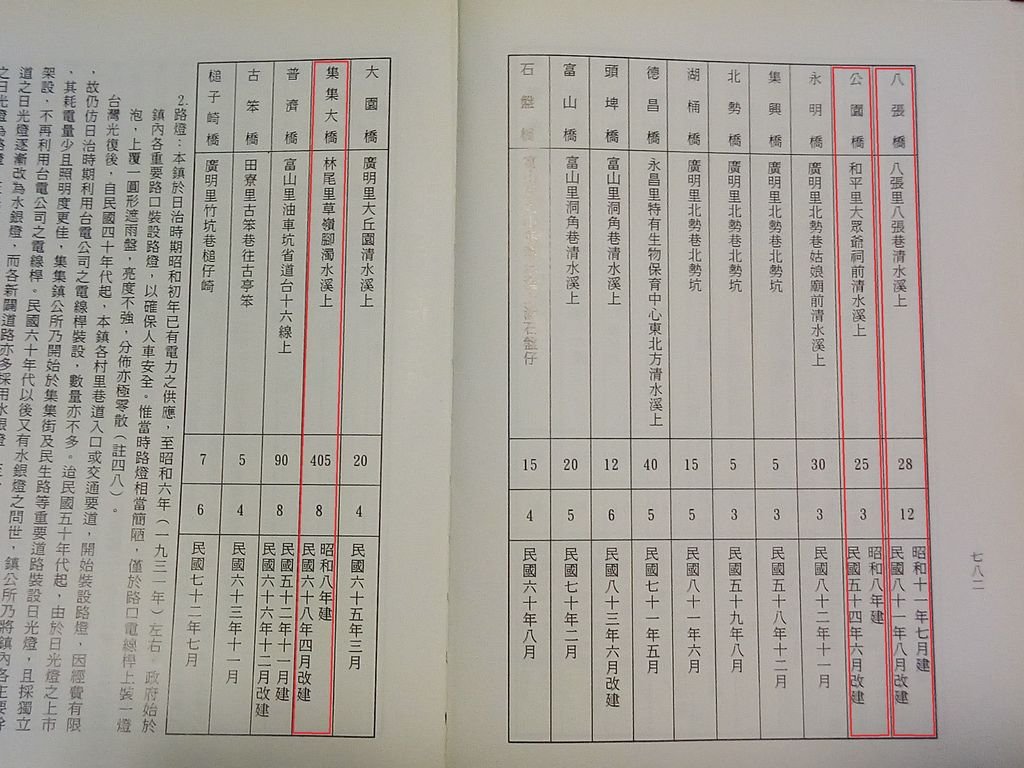 七八二
八張橋 八張里八張巷清水溪上 28 12 昭和十一年七月建 民國八十一年八月改建
公園橋 和平里大眾爺祠前清水溪上 25 3 昭和八年建 民國五十四年六月改建
永明橋 廣明里北勢巷姑娘廟前清水溪上 30 3 民國八十二年十一月
集興橋 廣明里北勢巷北勢坑 5 3 民國五十八年十二月
北勢橋 廣明里北勢巷北勢坑 5 3 民國五十九年八月
湖桶橋 廣明里北勢巷北勢坑 15 5 民國八十一年六月
德昌橋 永昌里特有生物保育中心東北方清水溪上 40 5 民國七十一年五月
頭埤橋 富山里洞角巷清水溪上 12 6 民國八十三年六月改建
富山橋 富山里洞角巷清水溪上 20 5 民國七十年二月
石盤橋 石盤仔 15 4 民國六十年八月
大園橋 廣明里大丘園清水溪上 20 4 民國六十五年三月
集集大橋 林尾里草嶺腳濁水溪上 405 8 昭和八年建 民國六十八年四月改建
普濟橋 富山里油車坑省道台十六線上 90 8 民國五十二年十一月建 民國六十六年十二月改建
古笨橋 田寮里古笨巷往古亭笨 5 4 民國六十三年十一月
槌子崎橋 廣明里竹坑巷槌仔崎 7 6 民國七十二年七月
2.路燈：本鎮於日治時期昭和初年已有電力之供應，至昭和六年（一九三一年）左右。政府始於
鎮內各重要路口裝設路燈，以確保人車安全。惟當時路燈相當簡陋，僅於路口電線桿上裝一燈
泡，上覆一圓形遮雨盤，亮度不強，分佈亦極零散（註四八）。
台灣光復後，自民國四十年代起，本鎮各村里巷道入口或交通要道，開始裝設路燈，因經費有限
，故仍仿日治時期利用台電公司之電線桿裝設，數量亦不多。迨民國五十年代起，由於日光燈之上市
，其耗電量少且照明度更佳，集集鎮公所乃開始於集集街及民生路等重要道路裝設日光燈，且採獨立
架設，不再利用台電公司之電線桿。民國六十年代以後又有水銀燈之問世，鎮公所乃將鎮內各主要幹
道之日光燈逐漸改為水銀燈，而各新闢道路亦多採用水銀燈